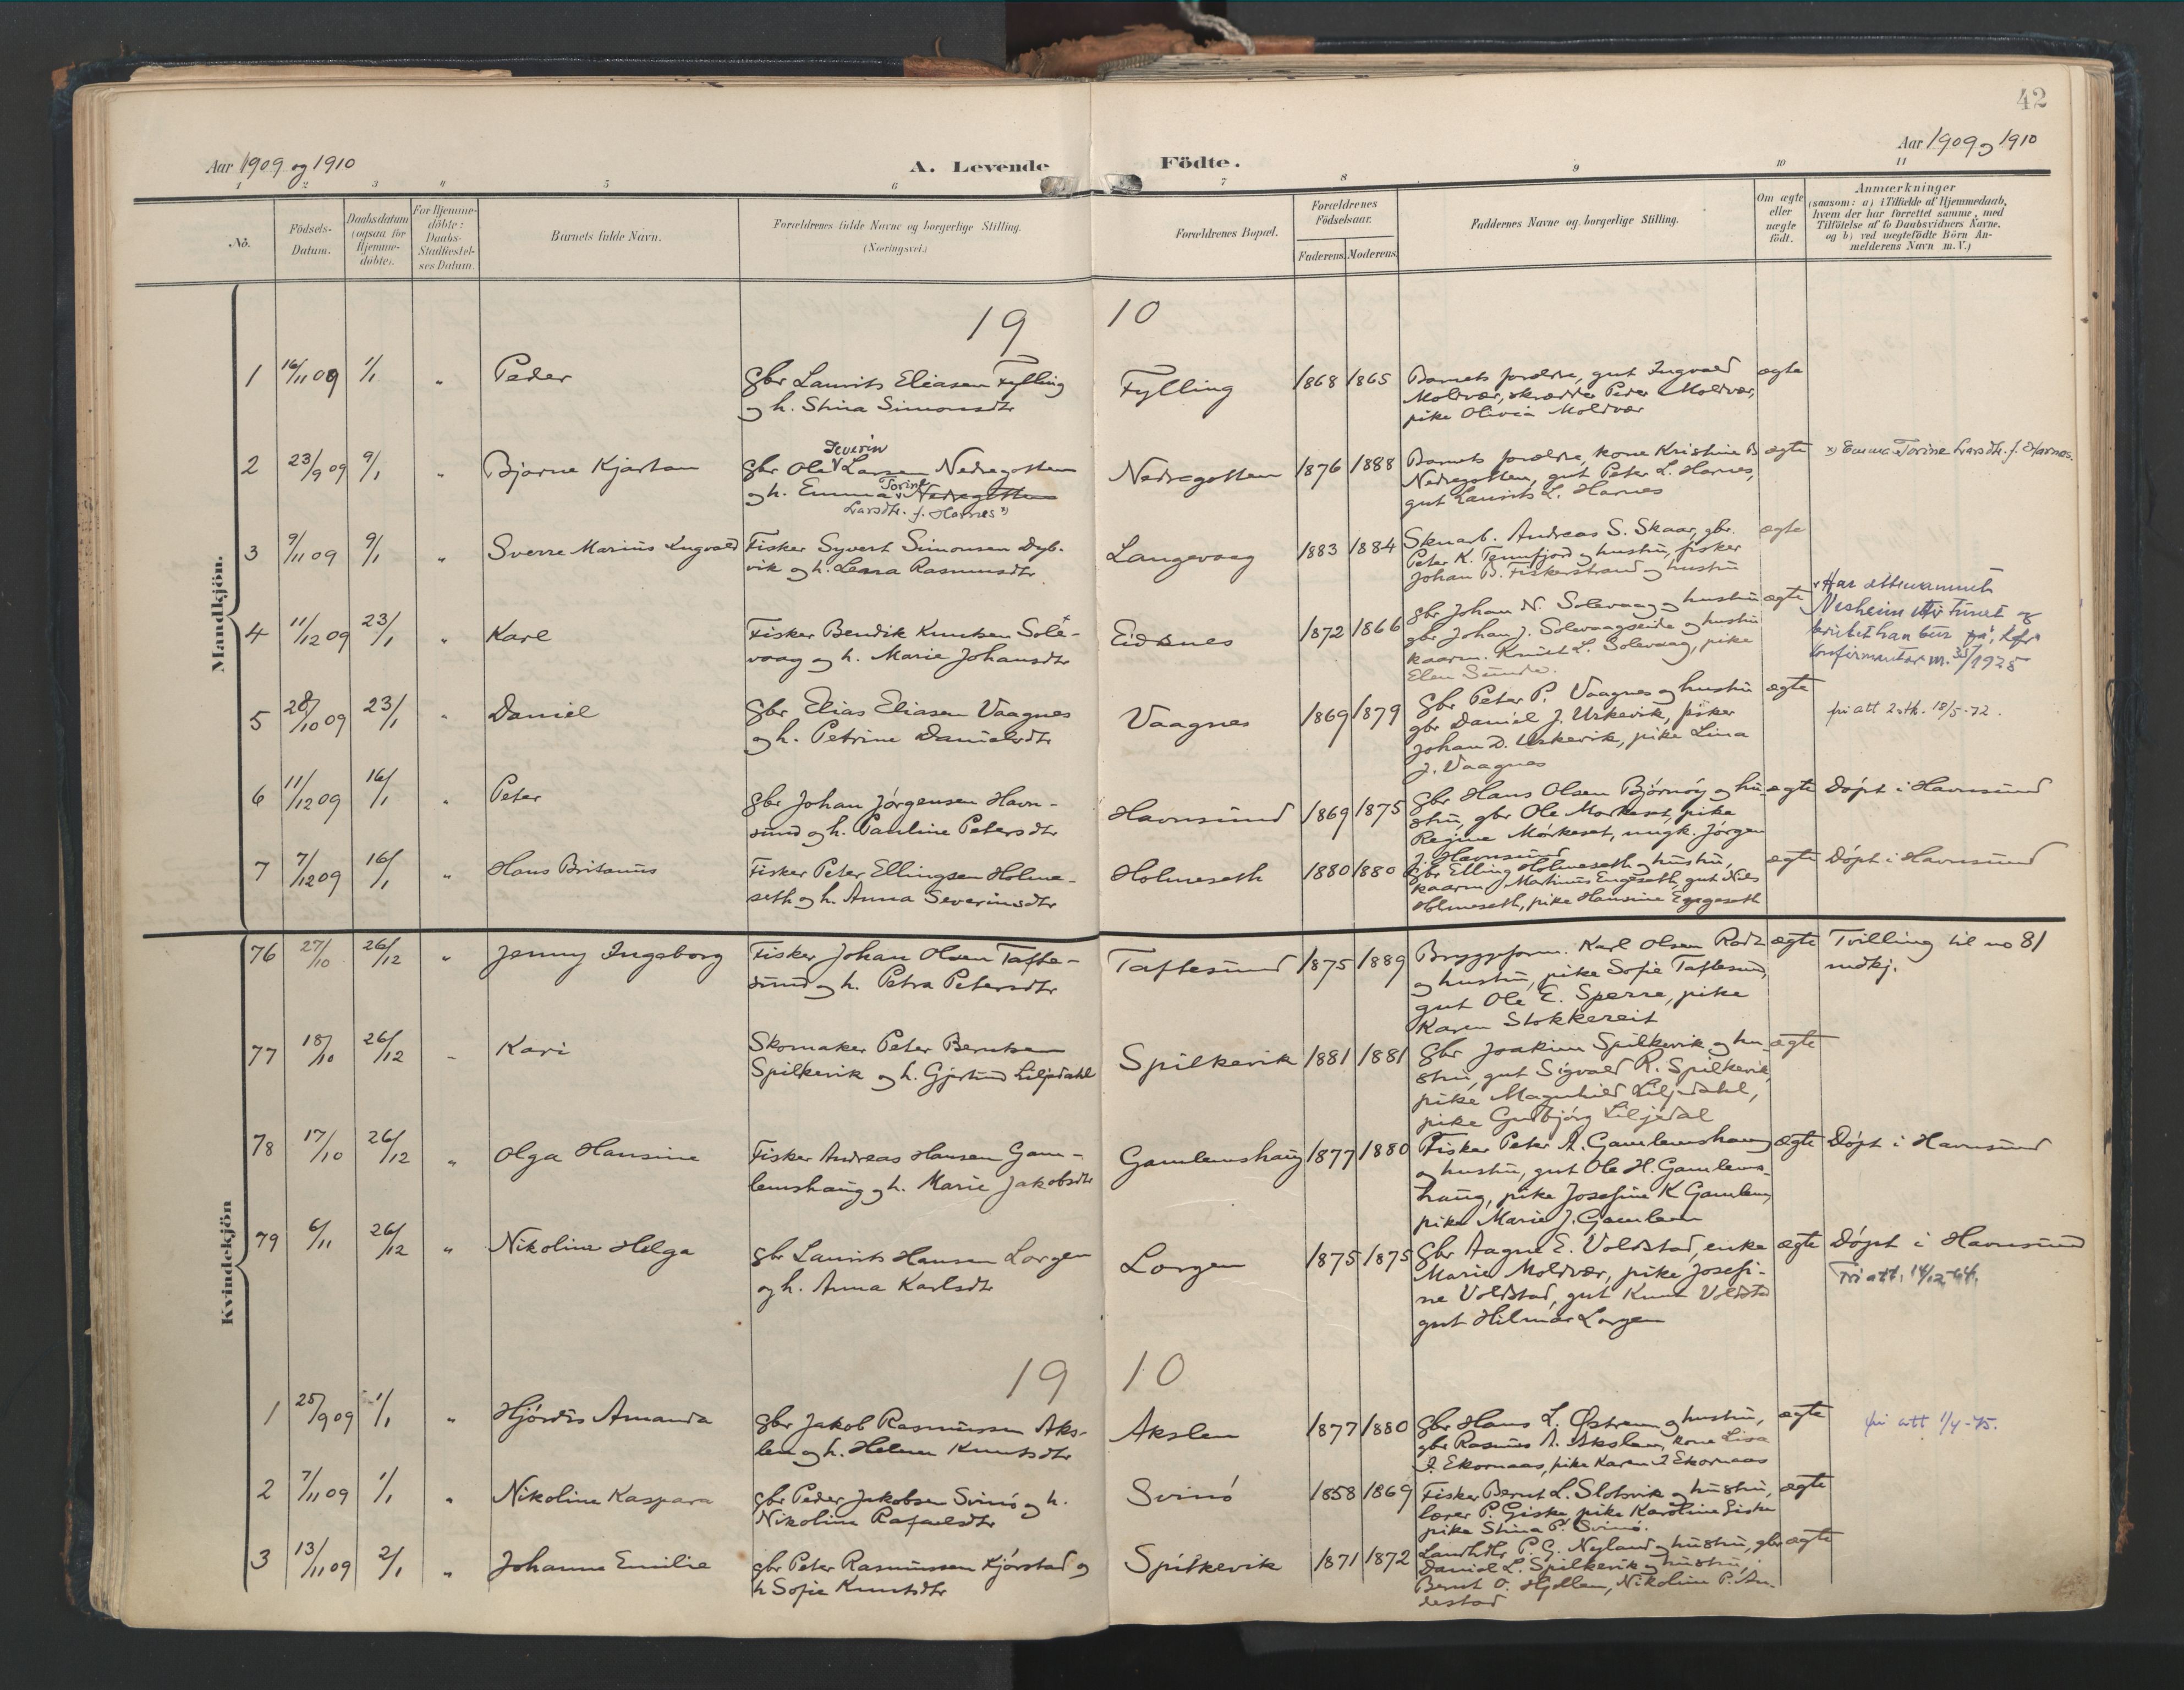 42
Aar 1909 og 1910
A. Levende Födte.
Aar 1909 og 1910
1 2 3 4 5 6 7 8 9 10 11
No.
Födsels-
Datum.
Daabsdatum
(ogsaa for
Hjemme-
döbte).
For Hjemme-
döbte:
Daabs-
Stadfæstel-
ses Datum.
Barnets fulde Navn.
Forældrenes fulde Navne og borgerlige Stilling.
(Næringsvei.)
Forældrenes Bopæl.
Forældrenes
Födselsaar.
Faderens. Moderens.
Faddernes Navne og borgerlige Stilling.
Om ægte
eller
uægte
födt.
Anmærkninger
(saasom: a) i Tilfælde af Hjemmedaab,
hvem der har forrettet samme, med
Tilföielse af to Daabsvidners Navne,
og b) ved uægtefödte Börn An-
melderens Navn m. V.)
Mandkjön.
19 10
1 16/11 09 1/1 " Peder
Gbr Laurits Eliasen Fylling
og h. Stina Simonsdtr
Fylling 1868 1865
Barnets forældre, gut Ingvald
Moldvær, skrædder Peder Moldvær,
pike Olivia Moldvær
ægte
2 23/9 09 9/1 " Bjarne Kjartan
Severin
Gbr Ole Larsen Nedregotten
Torine
og h. Emma Nedregotten
Larsdtr. f. Harnes x)
Nedregotten 1876 1888
Barnets forældre, kone Kristine B
Nedregotten, gut Peter L. Harnes,
gut Laurits L. Harnes
ægte
x) Emma Torine Larsdtr. f. Harnes.
3 9/11 09 9/1 " Sverre Marius Ingvald
Fisker Syvert Simonsen Dyb-
vik og h. Lena Rasmusdtr
Langevaag 1883 1884
Skuarb. Andreas S. Skaar, gbr.
Peter K. Tennfjord og hustru, fisker
Johan B. Fiskerstrand og hustru
ægte
4 11/12 09 23/1 " Karl
Fisker Bendik Knutsen Sole-
vaag og h. Marie Johansdtr
Eidsnes 1872 1866
gbr Johan N. Solevaag og hustru
gbr Johan J. Solevaagseide og hustru
kaarm. Knut L. Solevaag, pike
Elen Sunde.
ægte
Har etternamnet
Nesheim etter tunet og
bruket han bur på,
5 28/10 09 23/1 " Daniel
Gbr Elias Eliasen Vaagnes
og h. Petrine Danielsdtr
Vaagnes 1869 1879
Gbr Peter P. Vaagnes og hustru
gbr Daniel J. Urkevik, fisker
Johan D. Urkevik, pike Lina
J. Vaagnes
ægte
fri att 18/5-72.
6 11/12 09 16/1 " Peter
Gbr Johan Jörgensen Havn-
sund og h. Pauline Petersdtr
Havnsund 1869 1875
Gbr Hans Olsen Björnöy og hu-
stru, gbr Ole Morkeset, pike
Regine Mörkeset, ungk. Jörgen
J. Havnsund
ægte
Döpt i Havnsund
7 7/12 09 16/1 " Hans Britanus
Fisker Peter Ellingsen Holme-
seth og h. Anna Severinsdtr
Holmeseth 1880 1880
Gbr Elling Holmeseth og hustru,
kaarm Martinus Engeseth, gut Nils
Holmeseth, pike Hansine Engeseth
ægte
Döpt i Havnsund
Kvindekjön
76 27/10 26/12 " Jenny Ingeborg
Fisker Johan Olsen Tafte-
sund og h. Petra Petersdtr
Taftesund 1875 1889
Bryggeform. Karl Olsen Rødz
og hustru, pike Sofie Taftesund,
gut Ole E. Sperre, pike
Karen Stokkereit
ægte
Tvilling til no 81
mdkj.
77 18/10 26/12 " Kari
Skomaker Peter Berntsen
Spilkevik og h. Gjertrud Liljedahl
Spilkevik 1881 1881
Gbr Joakim Spilkevik og hu-
stru, gut Sigvald R. Spilkevik,
pike Magnhild Liljedahl,
pike Gudbjörg Liljedal
ægte
78 17/10 26/12 " Olga Hansine
Fisker Andreas Hansen Gam-
lemshaug og h. Marie Jakobsdtr
Gamlemshaug 1877 1880
Fisker Peter A. Gamlemshaug
og hustru, gut Ole H. Gamlems-
haug, pike Josefine K Gamlem,
pike Marie J. Gamlem
ægte
Döpt i Havnsund
79 6/11 26/12 " Nikoline Helga
Gbr Laurits Hansen Lorgen
og h. Anna Karlsdtr
Lorgen 1875 1875
Gbr Aagne E. Voldstad, enke
Marie Moldvær, pike Josefi-
ne Voldstad, gut Knut Voldstad
gut Hilmar Lorgen
ægte
Döpt i Havnsund
Fri att. 14/12-64.
19 10
1 25/9 09 1/1 " Hjördis Amanda
Gbr Jakob Rasmussen Aks-
len og h. Helene Knutsdtr
Akslen 1877 1880
Gbr Hans L. Østrem og hustru,
gbr Rasmus A. Akslen, kone Lisa
I. Ekornaas, pike Karen I Ekornaas
ægte
fri att 1/4-75.
2 7/11 09 1/1 " Nikoline Kaspara
Gbr Peder Jakobsen Svinö og h.
Nikoline Rafaelsdtr
Svinö 1858 1869
Fisker Bernt L. Slotsvik og hustru,
lærer P. Giske, pike Karoline Giske
pike Stina P. Svinö.
ægte
3 13/11 09 2/1 " Johanne Emilie
gbr Peter Rasmussen Kjörstad og
h Sofie Knutsdtr
Spilkevik 1871 1872
Landhdlr P. G. Nyland og hustru, gbr
Daniel L. Spilkevik og hustru,
Bernt O. Hjellen, Nikoline P. An-
destad
ægte